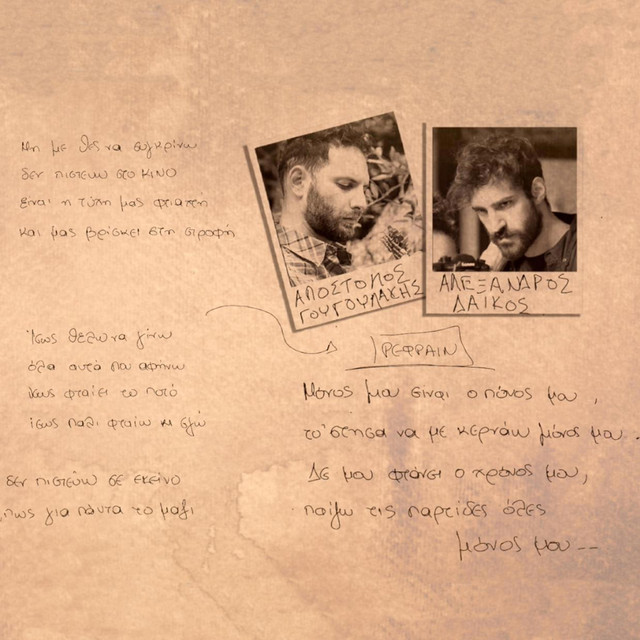 Μη με θες να συγκρίνω
δεν πιστεύω στο κινο
είναι η τύχη μας φτιαχτή
και μας βρίσκει στη στροφή
ΑΠΟΣΤΟΛΟΣ
ΓΟΥΓΟΥΛΑΚΗΣ
ΑΛΕΞΑΝΔΡΟΣ
ΔΑΪΚΟΣ
Ίσως θέλω να γίνω
όλα αυτά που αφήνω
ίσως φταίει το ποτό
ίσως πάλι φταίω κι εγώ
δεν πιστεύω σε εκείνο
πως για πάντα το μαζί
ΡΕΦΡΑΙΝ
Μόνος μου είναι ο πόνος μου,
το'στησα να με κερνάω μόνος μου..
Δε μου φτάνει ο χρόνος μου,
παίζω τις παρτίδες όλες
μόνος μου--